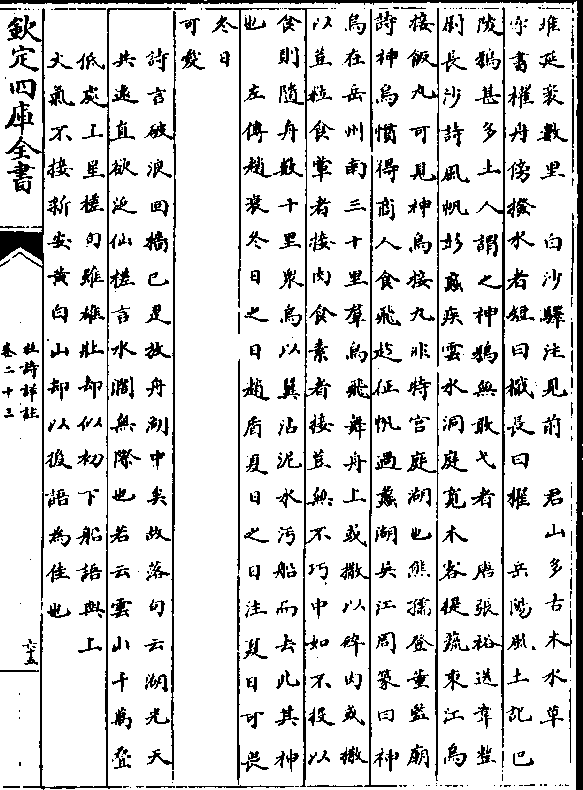 堆延袤數里　白沙驛注見前　君山多古木水草
字書權舟傍撥水者短曰檝長曰櫂　岳陽風土記巴
陵鴉甚多土人謂之神鴉無敢弋者　唐張祜送韋整
尉長沙詩風帆彭蠡疾雲水洞庭寛木客提蔬束江烏
接飯丸可見神烏接丸非特宫庭湖也熊孺登董監廟
詩神烏慣得商人食飛趁征帆過蠡湖吳江周篆曰神
烏在岳州南三十里羣烏飛舞舟上或撒以碎肉或撒
以荳粒食葷者接肉食素者接荳無不巧中如不投以
食則隨舟數十里衆烏以翼沾泥水污船而去此其神
也　左傳趙衰冬日之日趙盾夏日之日注夏日可畏
冬日
可愛
詩言破浪回檣已是放舟湖中矣故落句云湖光天
共遠直欲泛仙槎言水濶無際也若云雲山千萬疊
低處上星槎句雖雄壯却似初下船語與上
文氣不接新安黄白山却以後語為佳也
欽定四庫全書
杜詩詳註
卷二十三
六十五